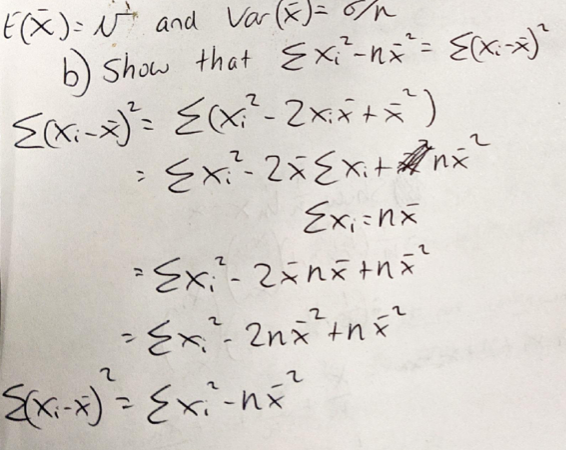 E(x̄) = N and Var(x̄) = σ/n
b) Show that Σxᵢ² - nx̄² = Σ(xᵢ - x̄)²
Σ(xᵢ - x̄)² = Σ(xᵢ² - 2xᵢx̄ + x̄²)
= Σxᵢ² - 2x̄Σxᵢ + nx̄²
Σxᵢ = nx̄
= Σxᵢ² - 2x̄nx̄ + nx̄²
= Σxᵢ² - 2nx̄² + nx̄²
Σ(xᵢ - x̄)² = Σxᵢ² - nx̄²